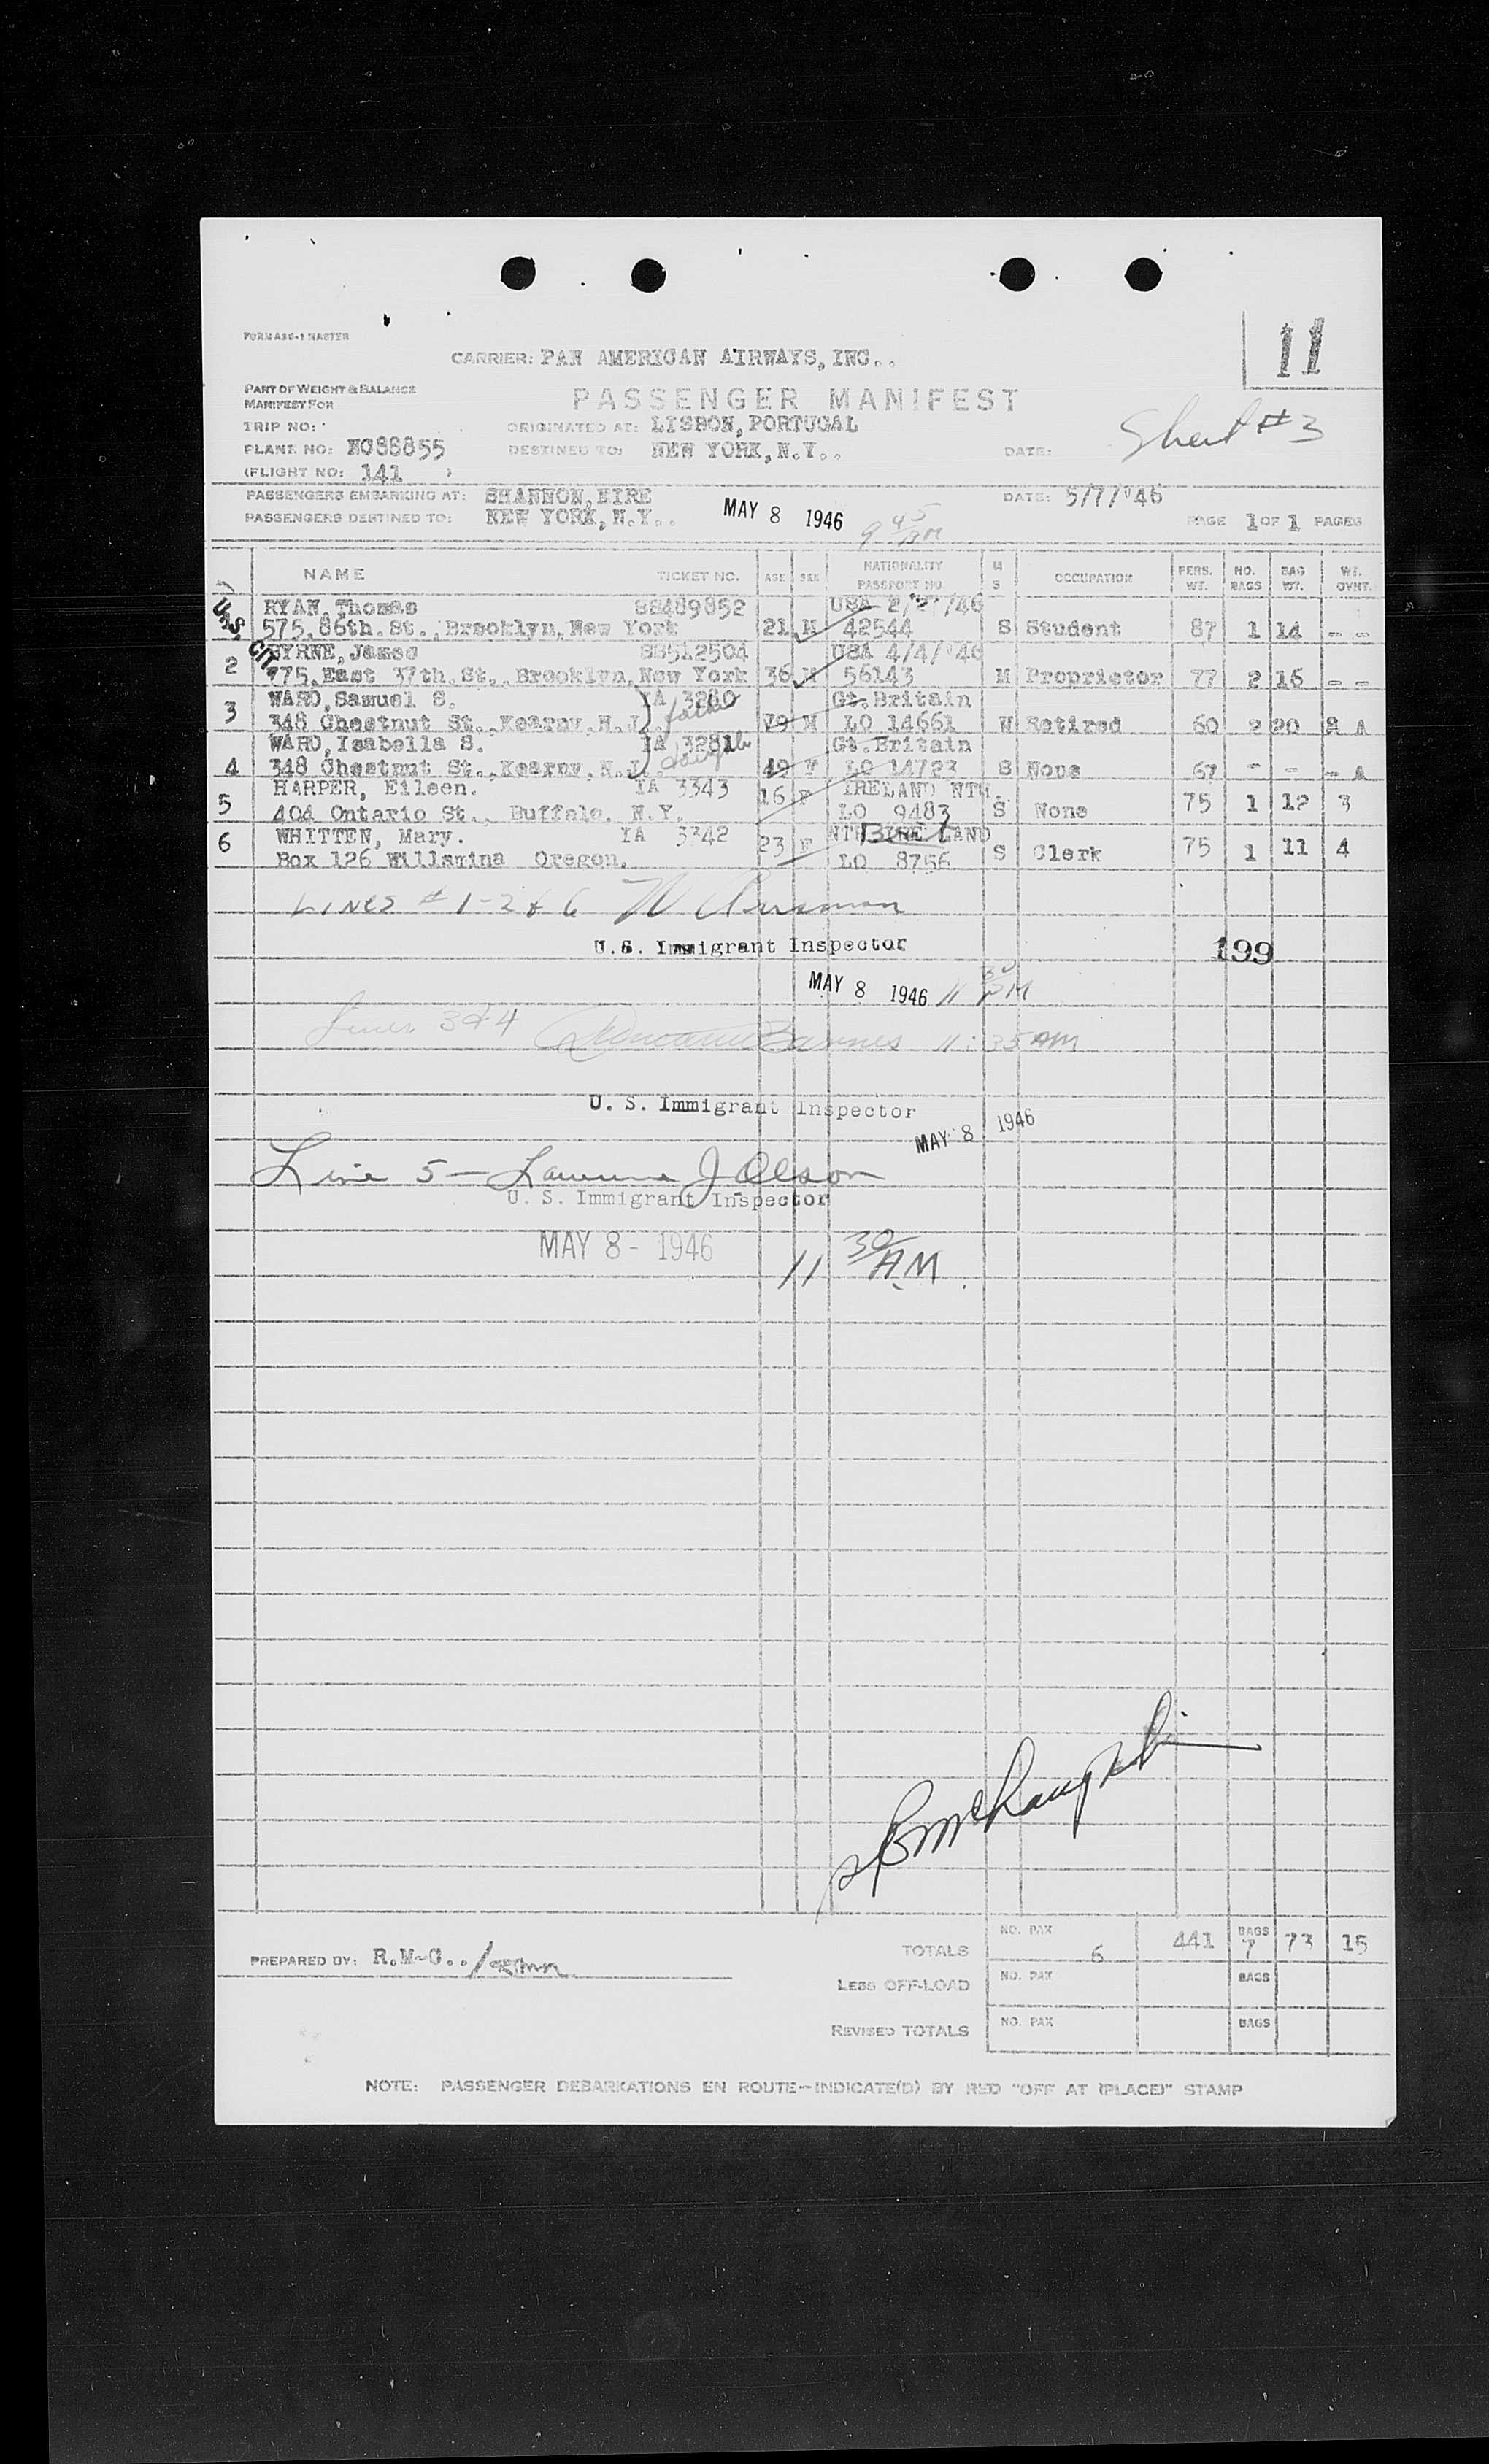 FORM ASC-1 MASTER
11
CARRIER: PAN AMERICAN AIRWAYS, INC..
PART OF WEIGHT & BALANCE
MANIFEST FOR
PASSENGER MANIFEST
TRIP NO:
ORIGINATED AT: LISBON, PORTUGAL
Sheet #3
PLANE NO: NC88855
DESTINED TO: NEW YORK, N.Y..
DATE:
(FLIGHT NO: 141 )
PASSENGERS EMBARKING AT: SHANNON, EIRE
DATE: 5/7/'46
PASSENGERS DESTINED TO: NEW YORK, N.Y..
MAY 8 1946 9 45 AM
PAGE 1 OF 1 PAGES
NAME TICKET NO. AGE SEX NATIONALITY PASSPORT NO. M S OCCUPATION PERS. WT. NO. BAGS BAG WT. WT. OVNT.
U.S. CIT
RYAN, Thomas 489852 USA
575, 86th. St., Brooklyn, New York 21 M 42544 S Student 87 1 14 - -
2 BYRNE, James 512504 USA 4/4/'46
775, East 37th. St., Brooklyn, New York 36 M 56143 M Proprietor 77 2 16 - -
3 WARD, Samuel S. IA 3280 father Gt. Britain
348 Chestnut St., Kearny, N.J. 79 M LO 14661 W Retired 60 2 20 8 A
WARD, Isabella S. IA 3281 Gt. Britain
4 348 Chestnut St., Kearny, N.J. 49 F LO 14723 S None 67 - - - A
HARPER, Eileen. IA 3343 IRELAND NTH.
5 404 Ontario St., Buffalo, N.Y. 16 F LO 9483 S None 75 1 12 3
6 WHITTEN, Mary. IA 3342 NTH IRELAND
Box 126 Willamina Oregon. 23 F LO 8756 S Clerk 75 1 11 4
LINES # 1-2 & 6
U.S. Immigrant Inspector
199
MAY 8 1946 11
Lines 3 & 4 Barnes 11:35 AM
U. S. Immigrant Inspector
MAY 8 1946
Line 5 - Lawrence J Olson
U. S. Immigrant Inspector
MAY 8 - 1946
11 30 AM
PREPARED BY: R.M-C../
TOTALS NO. PAX 6 441 BAGS 7 73 15
LESS OFF-LOAD NO. PAX BAGS
REVISED TOTALS NO. PAX BAGS
NOTE: PASSENGER DEBARKATIONS EN ROUTE—INDICATE(D) BY RED "OFF AT (PLACE)" STAMP